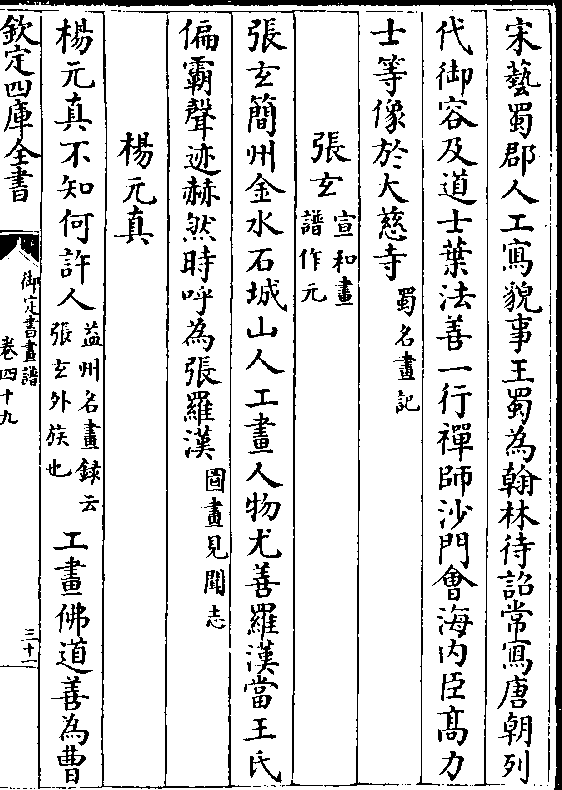 宋藝蜀郡人工寫貌事王蜀為翰林待詔常寫唐朝列
代御容及道士葉法善一行禪師沙門會海内臣髙力
士等像於大慈寺蜀名畫記
張玄宣和畫譜作元
張玄簡州金水石城山人工畫人物尤善羅漢當王氏
偏霸聲迹赫然時呼為張羅漢圖畫見聞志
楊元真
楊元真不知何許人益州名畫録云張玄外族也工畫佛道善為曹
欽定四庫全書
御定書畫譜
卷四十九
三十二